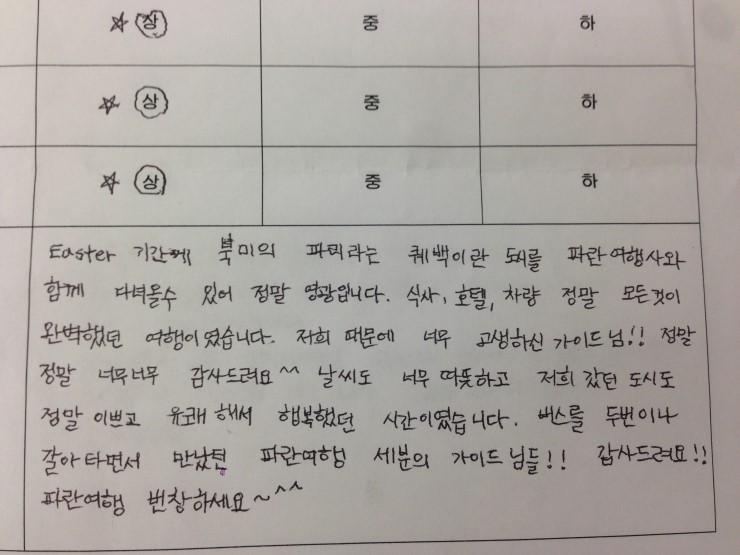 ☆ 상 중 하
☆ 상 중 하
☆ 상 중 하
Easter 기간에 북미의 파리라는 퀘백이란 도시를 파란여행사와
함께 다녀올수 있어 정말 영광입니다. 식사, 호텔, 차량 정말 모든것이
완벽했던 여행이였습니다. 저희 때문에 너무 고생하신 가이드님!! 정말
정말 너무너무 감사드려요^^ 날씨도 너무 따뜻하고 저희 갔던 도시도
정말 이쁘고 유쾌해서 행복했던 시간이였습니다. 버스를 두번이나
갈아타면서 만났던 파란여행 세분의 가이드님들!! 감사드려요!!
파란여행 번창하세요~^^